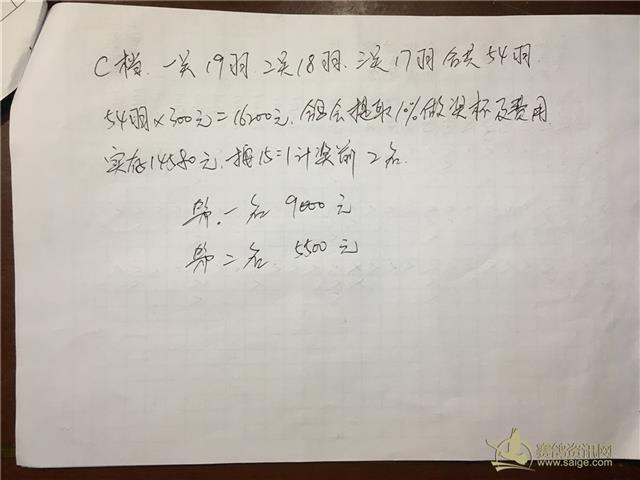 C档. 一关19羽 二关18羽. 三关17羽 合共54羽.
54羽×300元=16200元. 组会提取10%做奖杯及费用
实存14580元. 按15=1计奖前二名.
第一名 9000元
第二名 5500元
赛鸽资讯网
www.saige.com